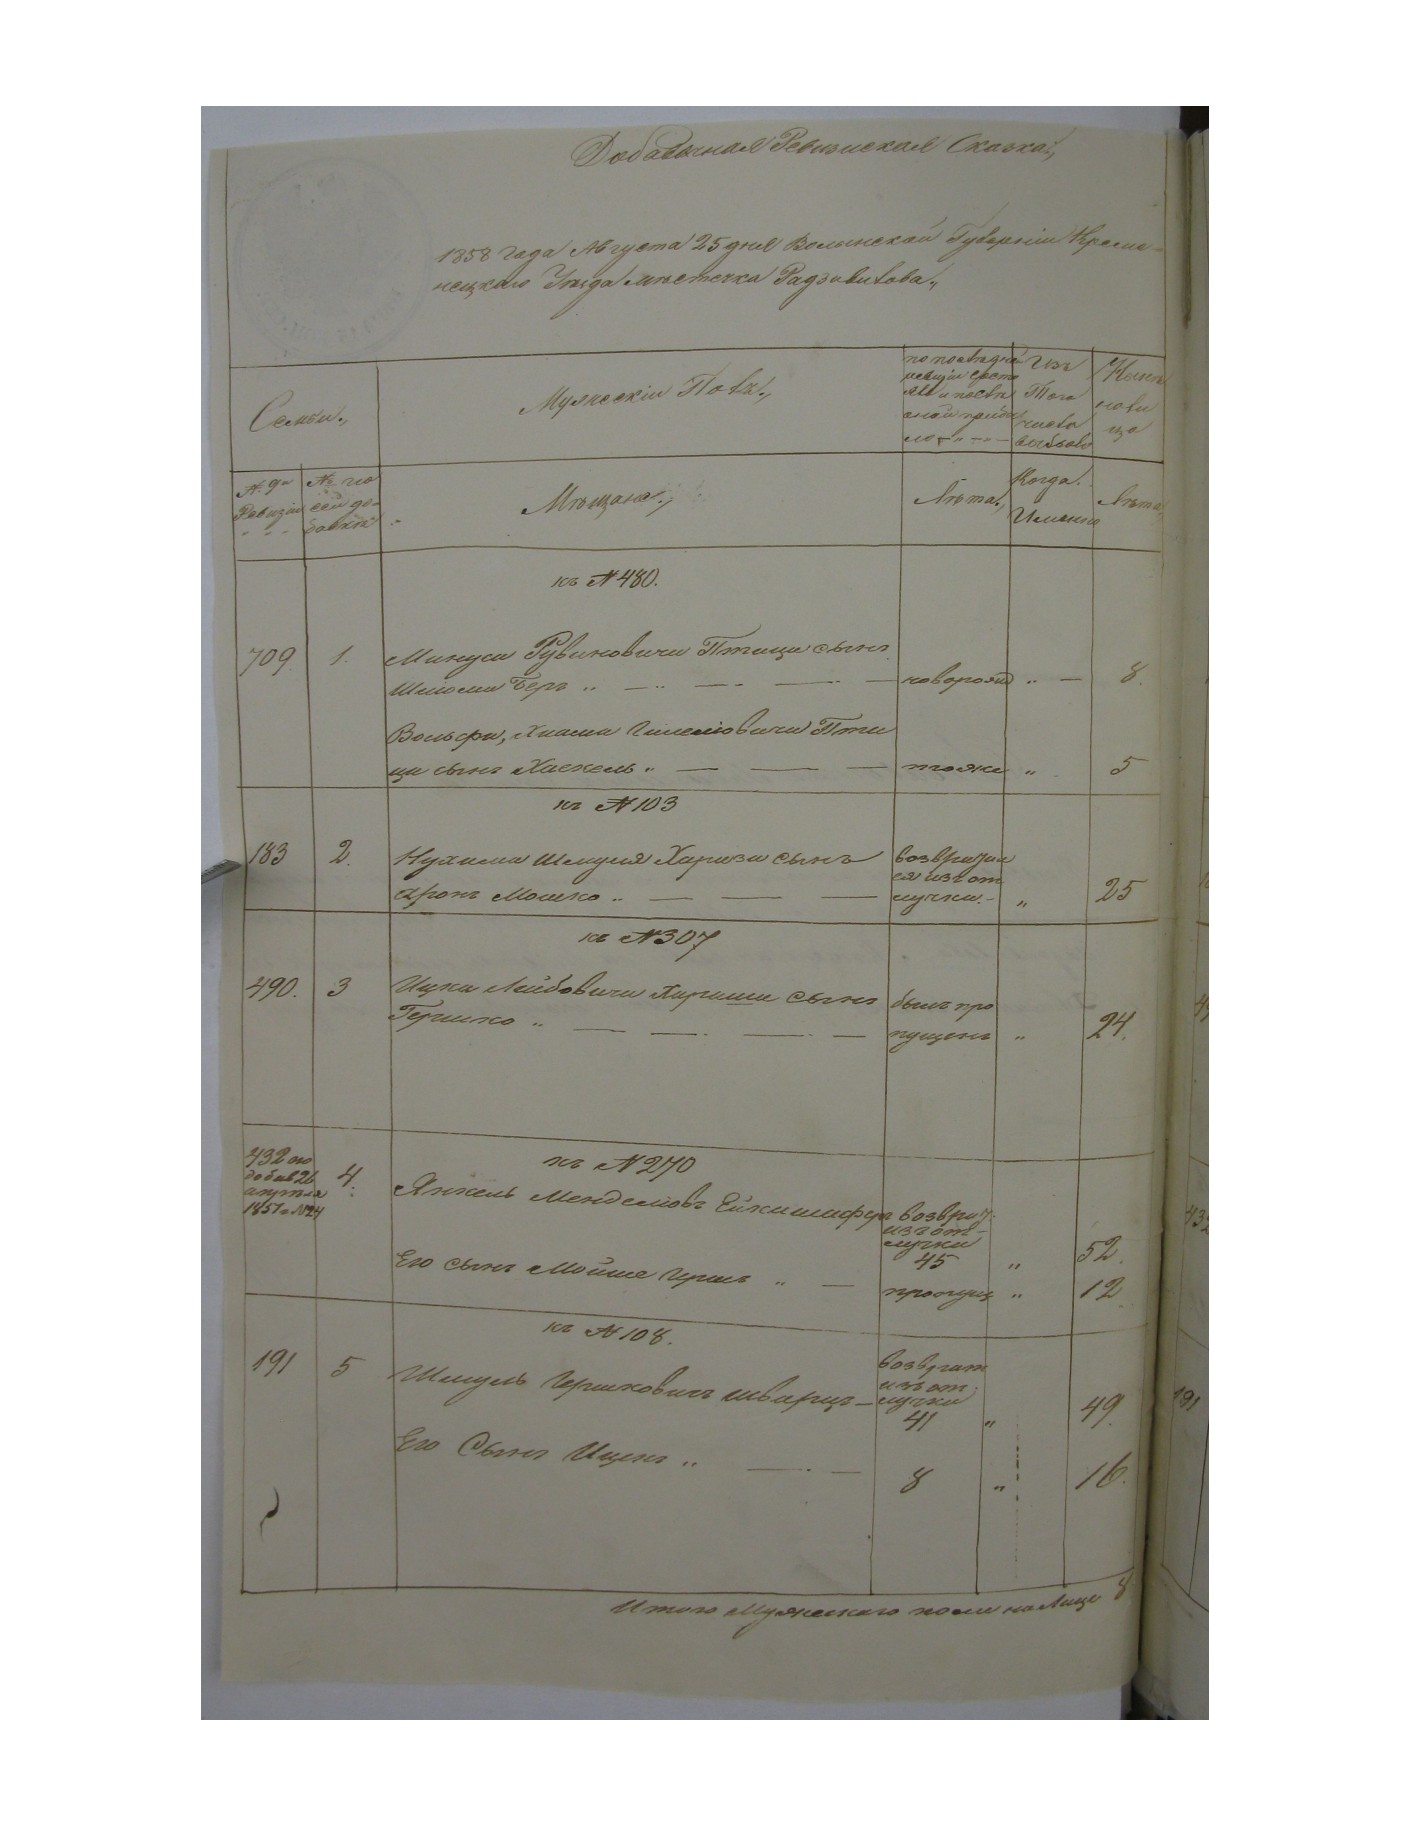 Добавочная Ревизская Сказка.,
1858 года Августа 25 дня Волынской Губерніи Креме-
нецкаго Уезда местечка Радзивилова.,
Семьи.,
Мужескій Полъ.,
по последней
ревизіи состо
яло и после
оной прибы
ло
Изъ
Того
числа
выбыло
Ныне
нали
цо
№ 9й
Ревизіи
№ по
сей до-
бавке
Мещане.,
Лета.,
Когда
Именно
Лета.,
къ № 480.
709. 1.
Рувиновича Птаци сынъ
Шлиома Беръ „ новорожд „ 8.
Вольфа, Хаима Птa
ци сынъ Хаскель „ тоже „ 5
къ № 103
183 2. Нухима Шмуля сынъ возвратил
ся изъ от
Аронъ Мошко „ лучки. „ 25
къ № 307
490. 3 Ицка Лейбовича сынъ былъ про
Гершко „ пущенъ „ 24.
къ № 270
432 по
добав 26
апреля
1851 г. № 24
4. Янкель Менделювъ возврат:
изъ от-
лучки
45 „ 52.
Его сынъ Мойше Гершъ „ пропущ „ 12
къ № 108.
191 5 Шмуль Гершковичъ Шварцъ возврат
изъ от
лучки
41 „ 49.
Его Сынъ Ицекъ „ 8 „ 16.
Итого Мужескаго пола на Лице 8